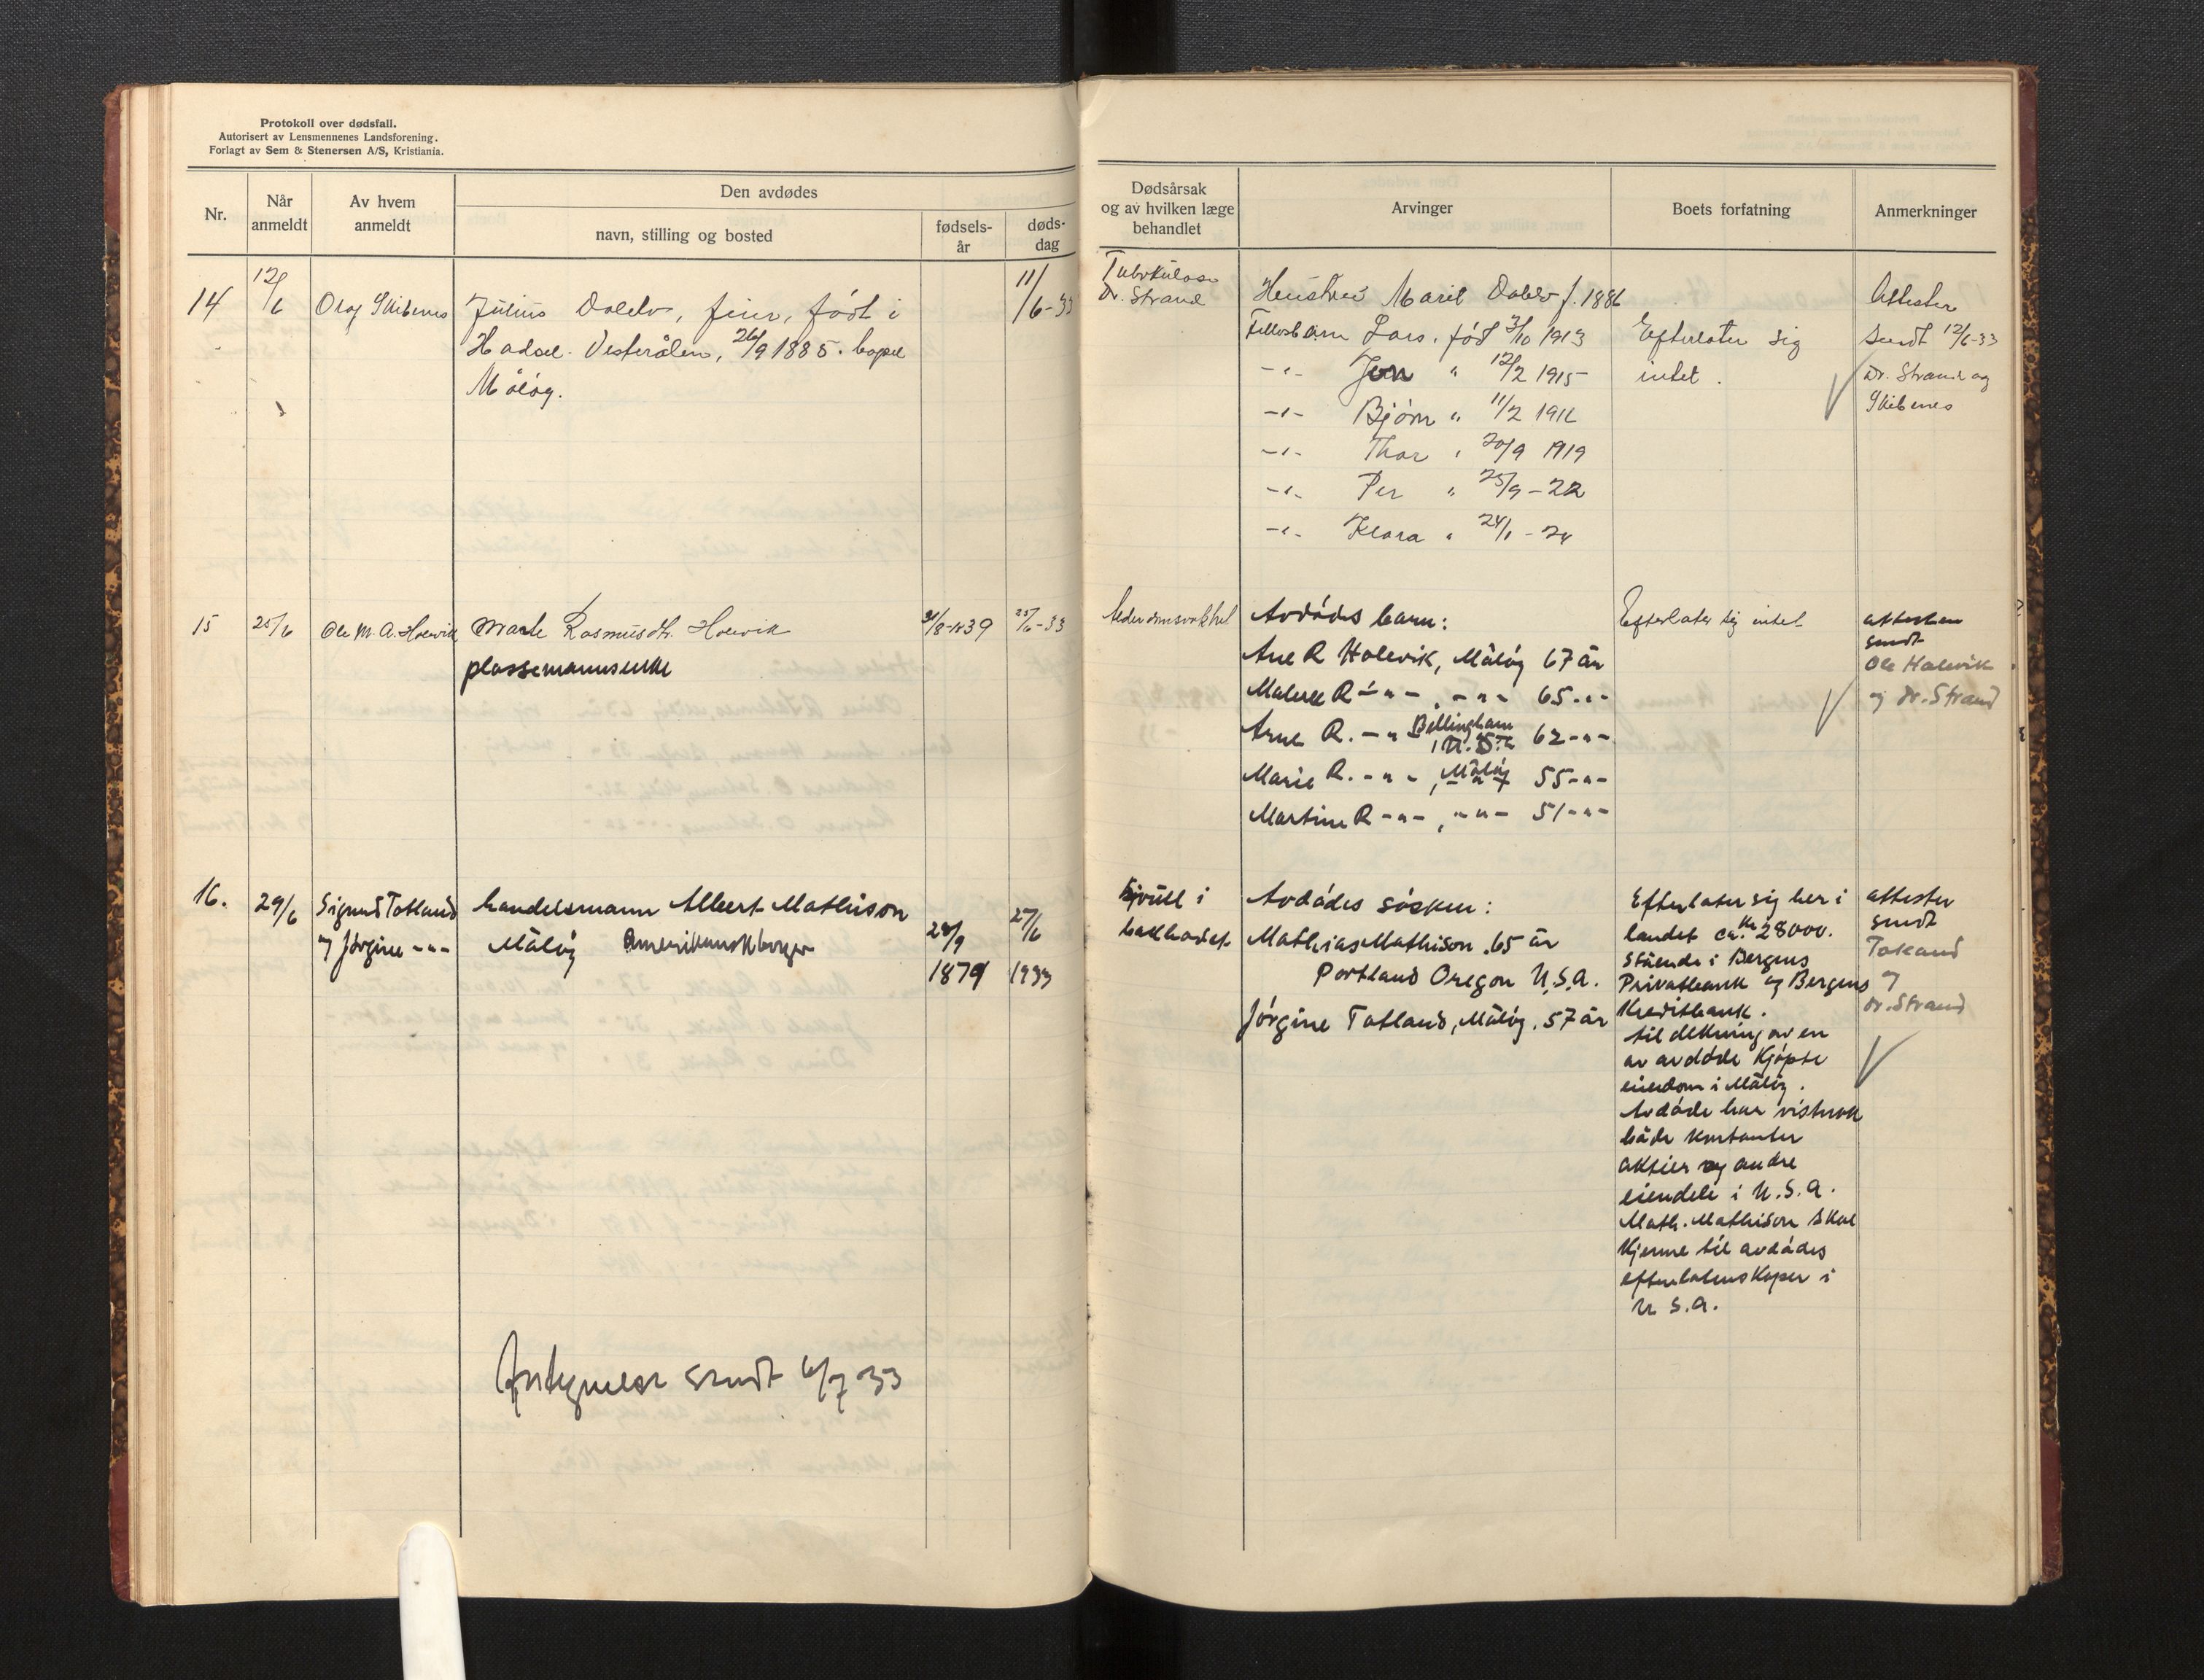 Protokoll over dødsfall.
Autorisert av Lensmennenes Landsforening.
Forlagt av Sem & Stenersen A/S, Kristiania.
Nr.
Når anmeldt
Av hvem anmeldt
Den avdødes
navn, stilling og bosted
fødsels-år
døds-dag
Dødsårsak og av hvilken læge behandlet
Arvinger
Boets forfatning
Anmerkninger
14
12/6
Olaf Skibenes
Julius Dalelv, feier, født i
Hadsel. Vesterålen, 26/9 1885. bopel
Måløy.
11/6-33
Tuberkulose
Dr. Strand
Hustru Marit Dalelv f. 1886
Fellesbarn Lars. født 3/10 1913
-"- Jon " 12/2 1915
-"- Bjørn " 11/2 1916
-"- Thor " 20/9 1919
-"- Per " 25/9-22
-"- Klara " 24/1-24
Efterlater sig
intet.
Attester
sendt 12/6-33
Dr. Strand og
Skibenes
15
25/6
Ole M. A. Holevik
Marte Rasmusdtr. Holevik
plassemannsenke
31/8-1839
25/6-33
Alderdomssvakhet
Avdødes barn:
Ane R Holevik, Måløy 67 år
R -"- , -"- 65 -"-
Arne R. -"- Bellingham
, U.S.A. 62 -"-
Marie R. -"- , Måløy 55 -"-
Martine R -"- , -"- 51 -"-
Efterlater sig intet
attesten
sendt
Ole Holevik
og dr. Strand
16.
29/6
Sigurd Totland
og Jørgine -"-
handelsmann Albert Mathison
Måløy Amerikansk borger
28/9
1879
27/6
1933
i
bakhodet
Avdødes søsken:
Mathias Mathison. 65 år
Portland Oregon U.S.A.
Jørgine Totland, Måløy. 57 år
Efterlater sig her i
landet ca. kr 28000.
stående i Bergens
Privatbank og Bergens
Kreditbank.
til dekning av en
av avdøde kjøpte
eiendom i Måløy.
Avdøde har vistnok
både kontanter
aktier og andre
eiendele i U.S.A.
Math. Mathison skal
kjenne til avdødes
efterlatenskaper i
U.S.A.
attester
sendt
Totland
og
dr. Strand
sendt 6/7 33